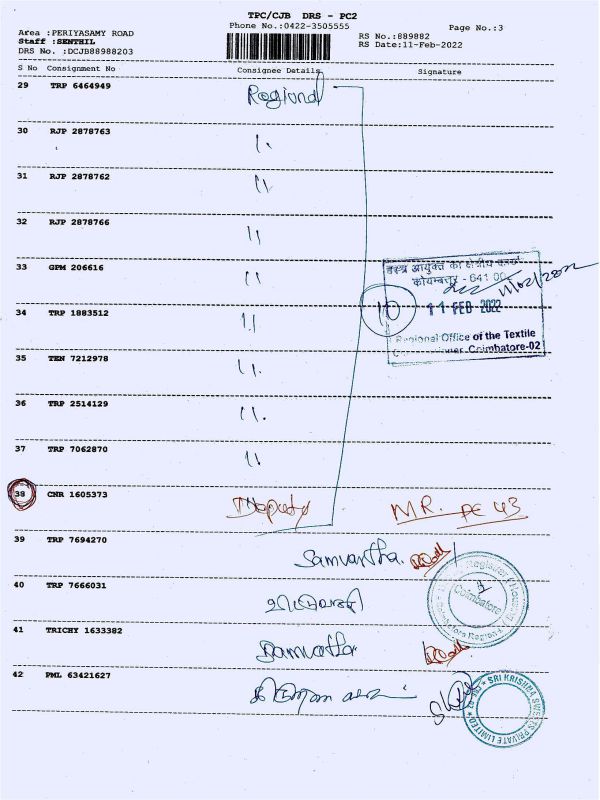 TPC/CJB DRS - PC2
Phone No.:0422-3505555
Page No.:3
Area :PERIYASAMY ROAD
Staff :SENTHIL
DRS No. :DCJB88988203
RS No.:889882
RS Date:11-Feb-2022
S No Consignment No Consignee Details Signature
29 TRP 6464949 Regional
30 RJP 2878763 "
31 RJP 2878762 "
32 RJP 2878766 "
33 GPM 206616 "
वस्त्र आयुक्त का क्षेत्रीय
कोयम्बत्तूर - 641 00
11/02/2022
34 TRP 1883512 "
10
11 FEB 2022
Regional Office of the Textile
Coimbatore-02
35 TEN 7212978 "
36 TRP 2514129 "
37 TRP 7062870 "
38 CNR 1605373 Deputy MR. PC 43
39 TRP 7694270 Samvartha.
40 TRP 7666031
Coimbatore
41 TRICHY 1633382 Samvartha
42 PML 63421627
SRI KRISHNA SWEETS PRIVATE LIMITED